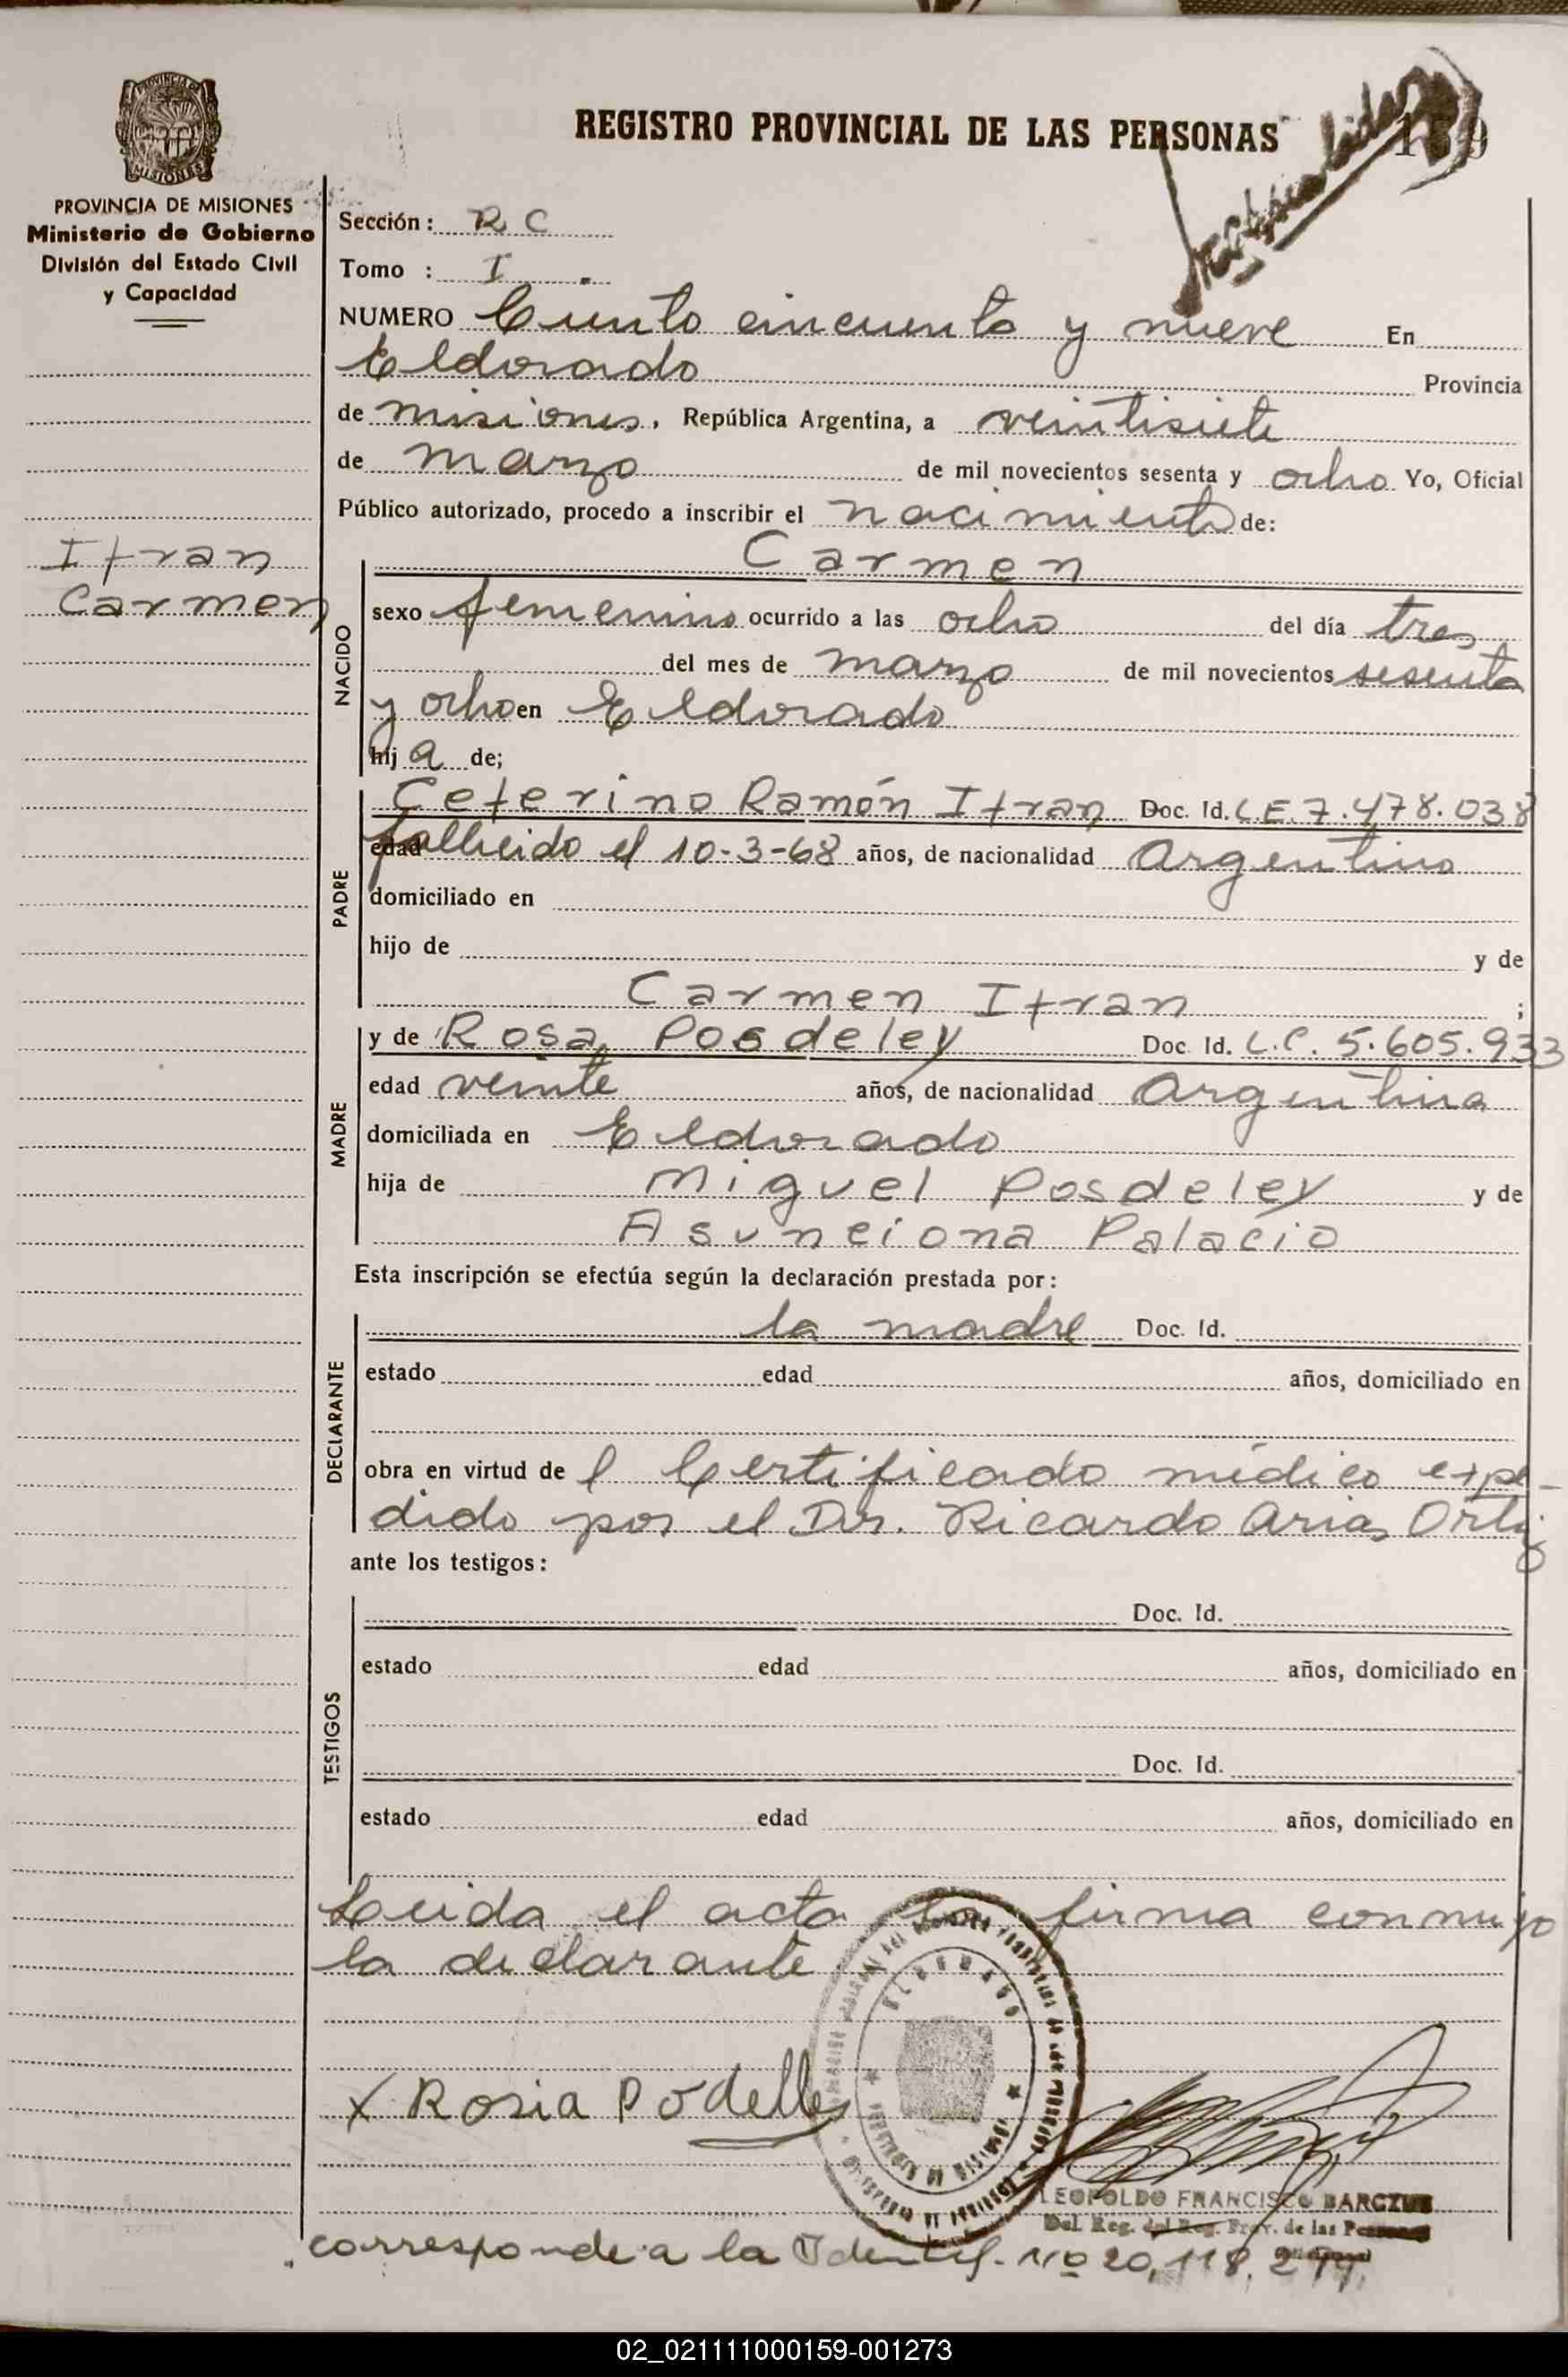 REGISTRO PROVINCIAL DE LAS PERSONAS
159
PROVINCIA DE
MISIONES
PROVINCIA DE MISIONES
Ministerio de Gobierno
División del Estado Civil
y Capacidad
Itran
Carmen
Sección: R C
Tomo : I
NUMERO Ciento cincuenta y nueve En
Eldorado Provincia
de misiones, República Argentina, a veintisiete
de marzo de mil novecientos sesenta y ocho Yo, Oficial
Público autorizado, procedo a inscribir el nacimiento de:
Carmen
NACIDO
sexo femenino ocurrido a las ocho del día tres
del mes de marzo de mil novecientos sesenta
y ocho en Eldorado
hij a de;
PADRE
Ceferino Ramón Itran Doc. Id. L.E. 7.478.038
edad fallecido el 10-3-68 años, de nacionalidad Argentino
domiciliado en
hijo de y de
Carmen Itran ;
MADRE
y de Rosa Posdeley Doc. Id. L.C. 5.605.933
edad veinte años, de nacionalidad Argentina
domiciliada en Eldorado
hija de Miguel Posdeley y de
Asunciona Palacio
Esta inscripción se efectúa según la declaración prestada por:
DECLARANTE
la madre Doc. Id.
estado edad años, domiciliado en
obra en virtud de l Certificado médico expe-
dido por el Dr. Ricardo Arias Ortiz
ante los testigos:
TESTIGOS
Doc. Id.
estado edad años, domiciliado en
Doc. Id.
estado edad años, domiciliado en
Leida el acta la firma conmigo
la declarante
ELDORADO
X Rosia Podelles
LEOPOLDO FRANCISCO
Del Reg. Prov. de las Personas
corresponde a la Identif. Nº 20,118,
02_021111000159-001273